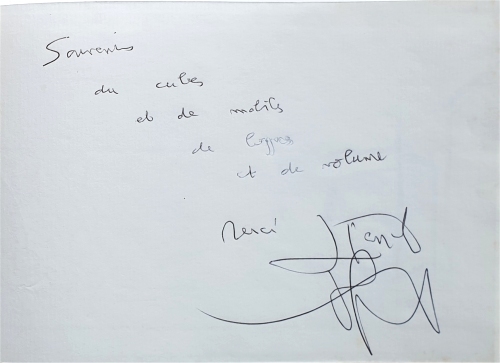 Souvenirs
du cubes
et de mobils
de
et de volume
Merci